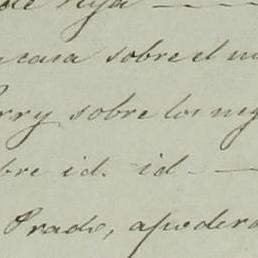 de hija
casa sobre el
rry sobre los neg
bre id. id.
Prado, apodera